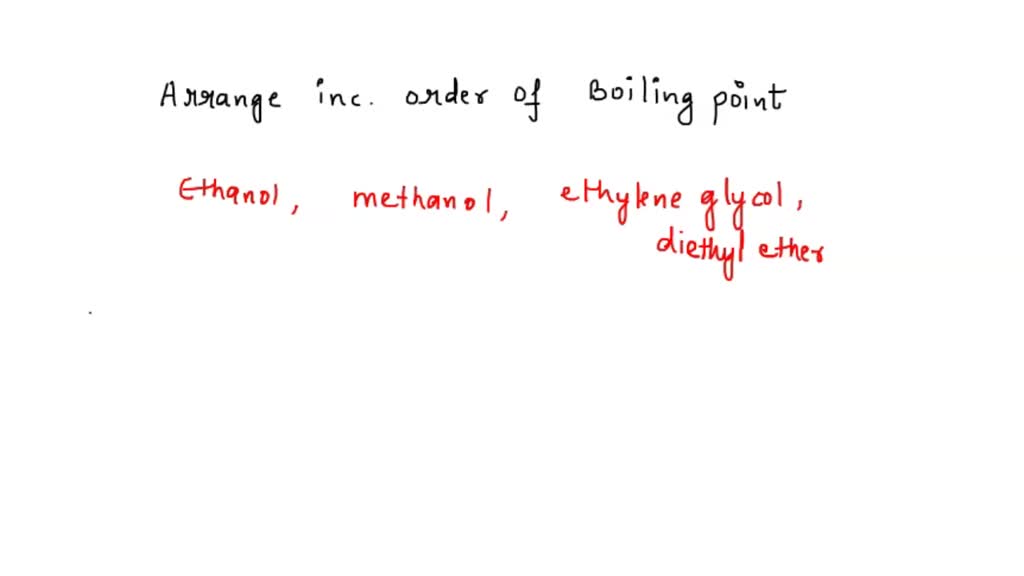 Arrange inc. order of Boiling point
Ethanol, methanol, ethylene glycol,
diethyl ether